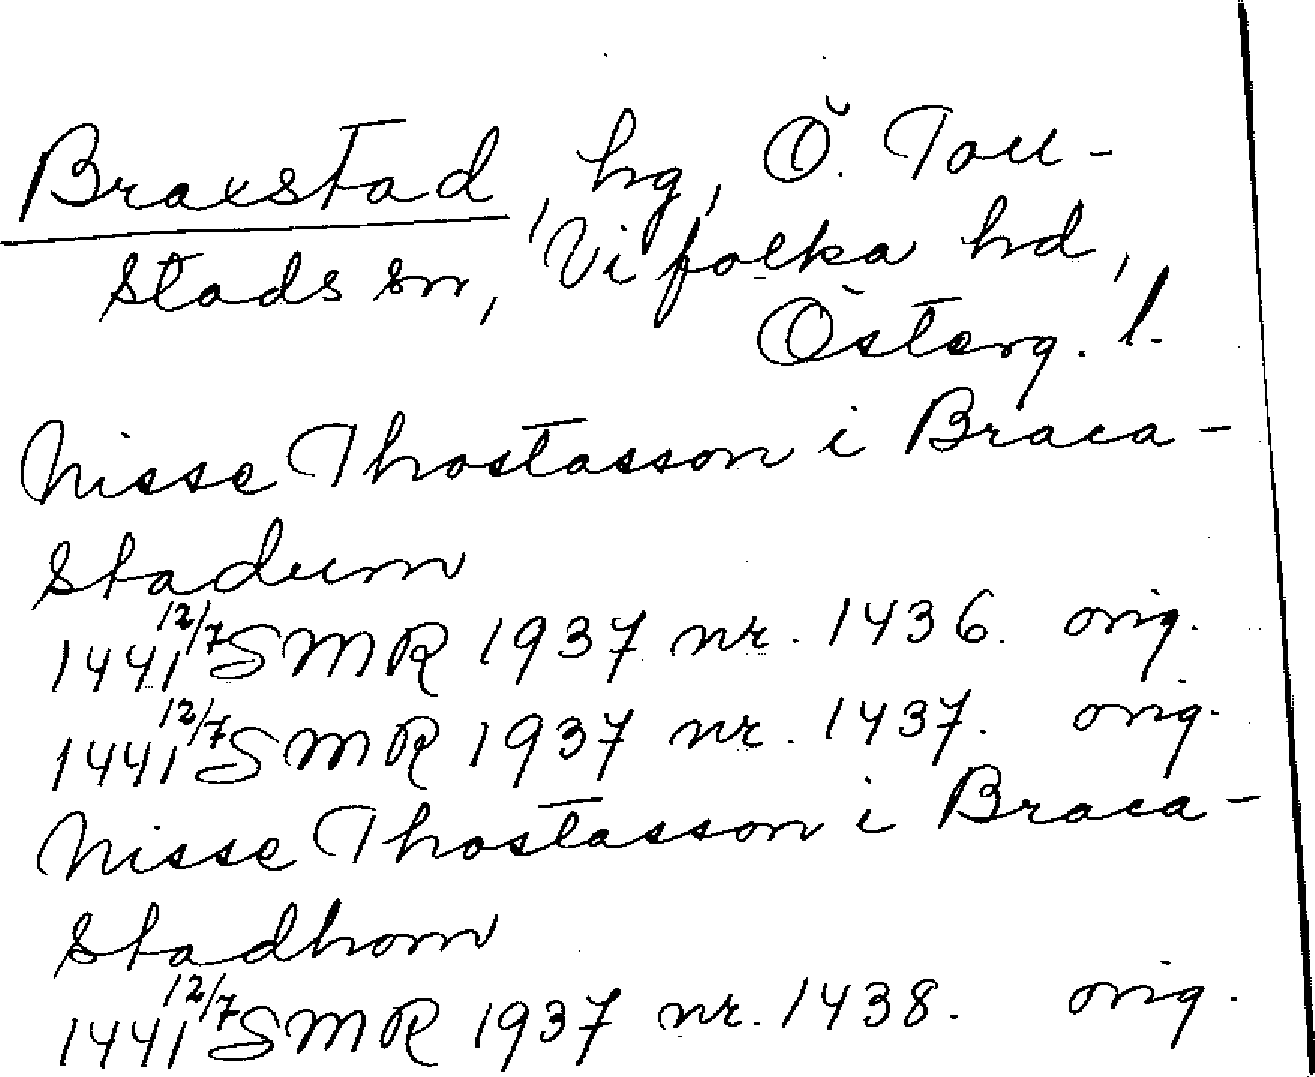 Braxstad, hg, Ö. Toll-
stads sn, Vifolka hd,
Österg. l.
Nisse Thostasson i Braca-
stadum
1441 12/7 SMR 1937 nr. 1436. orig.
1441 12/7 SMR 1937 nr. 1437. orig.
Nisse Thostasson i Braca-
stadhom
1441 12/7 SMR 1937 nr. 1438. orig.